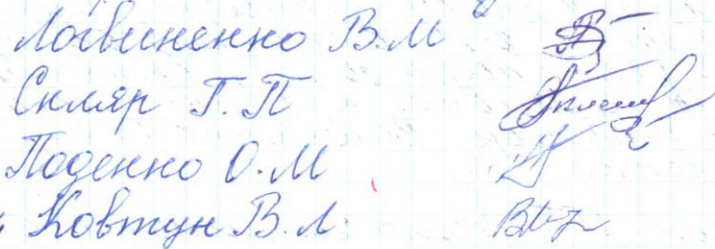 Логвиненко В.М
Скляр Г.П
Поденко О.М
Ковтун В.Л.